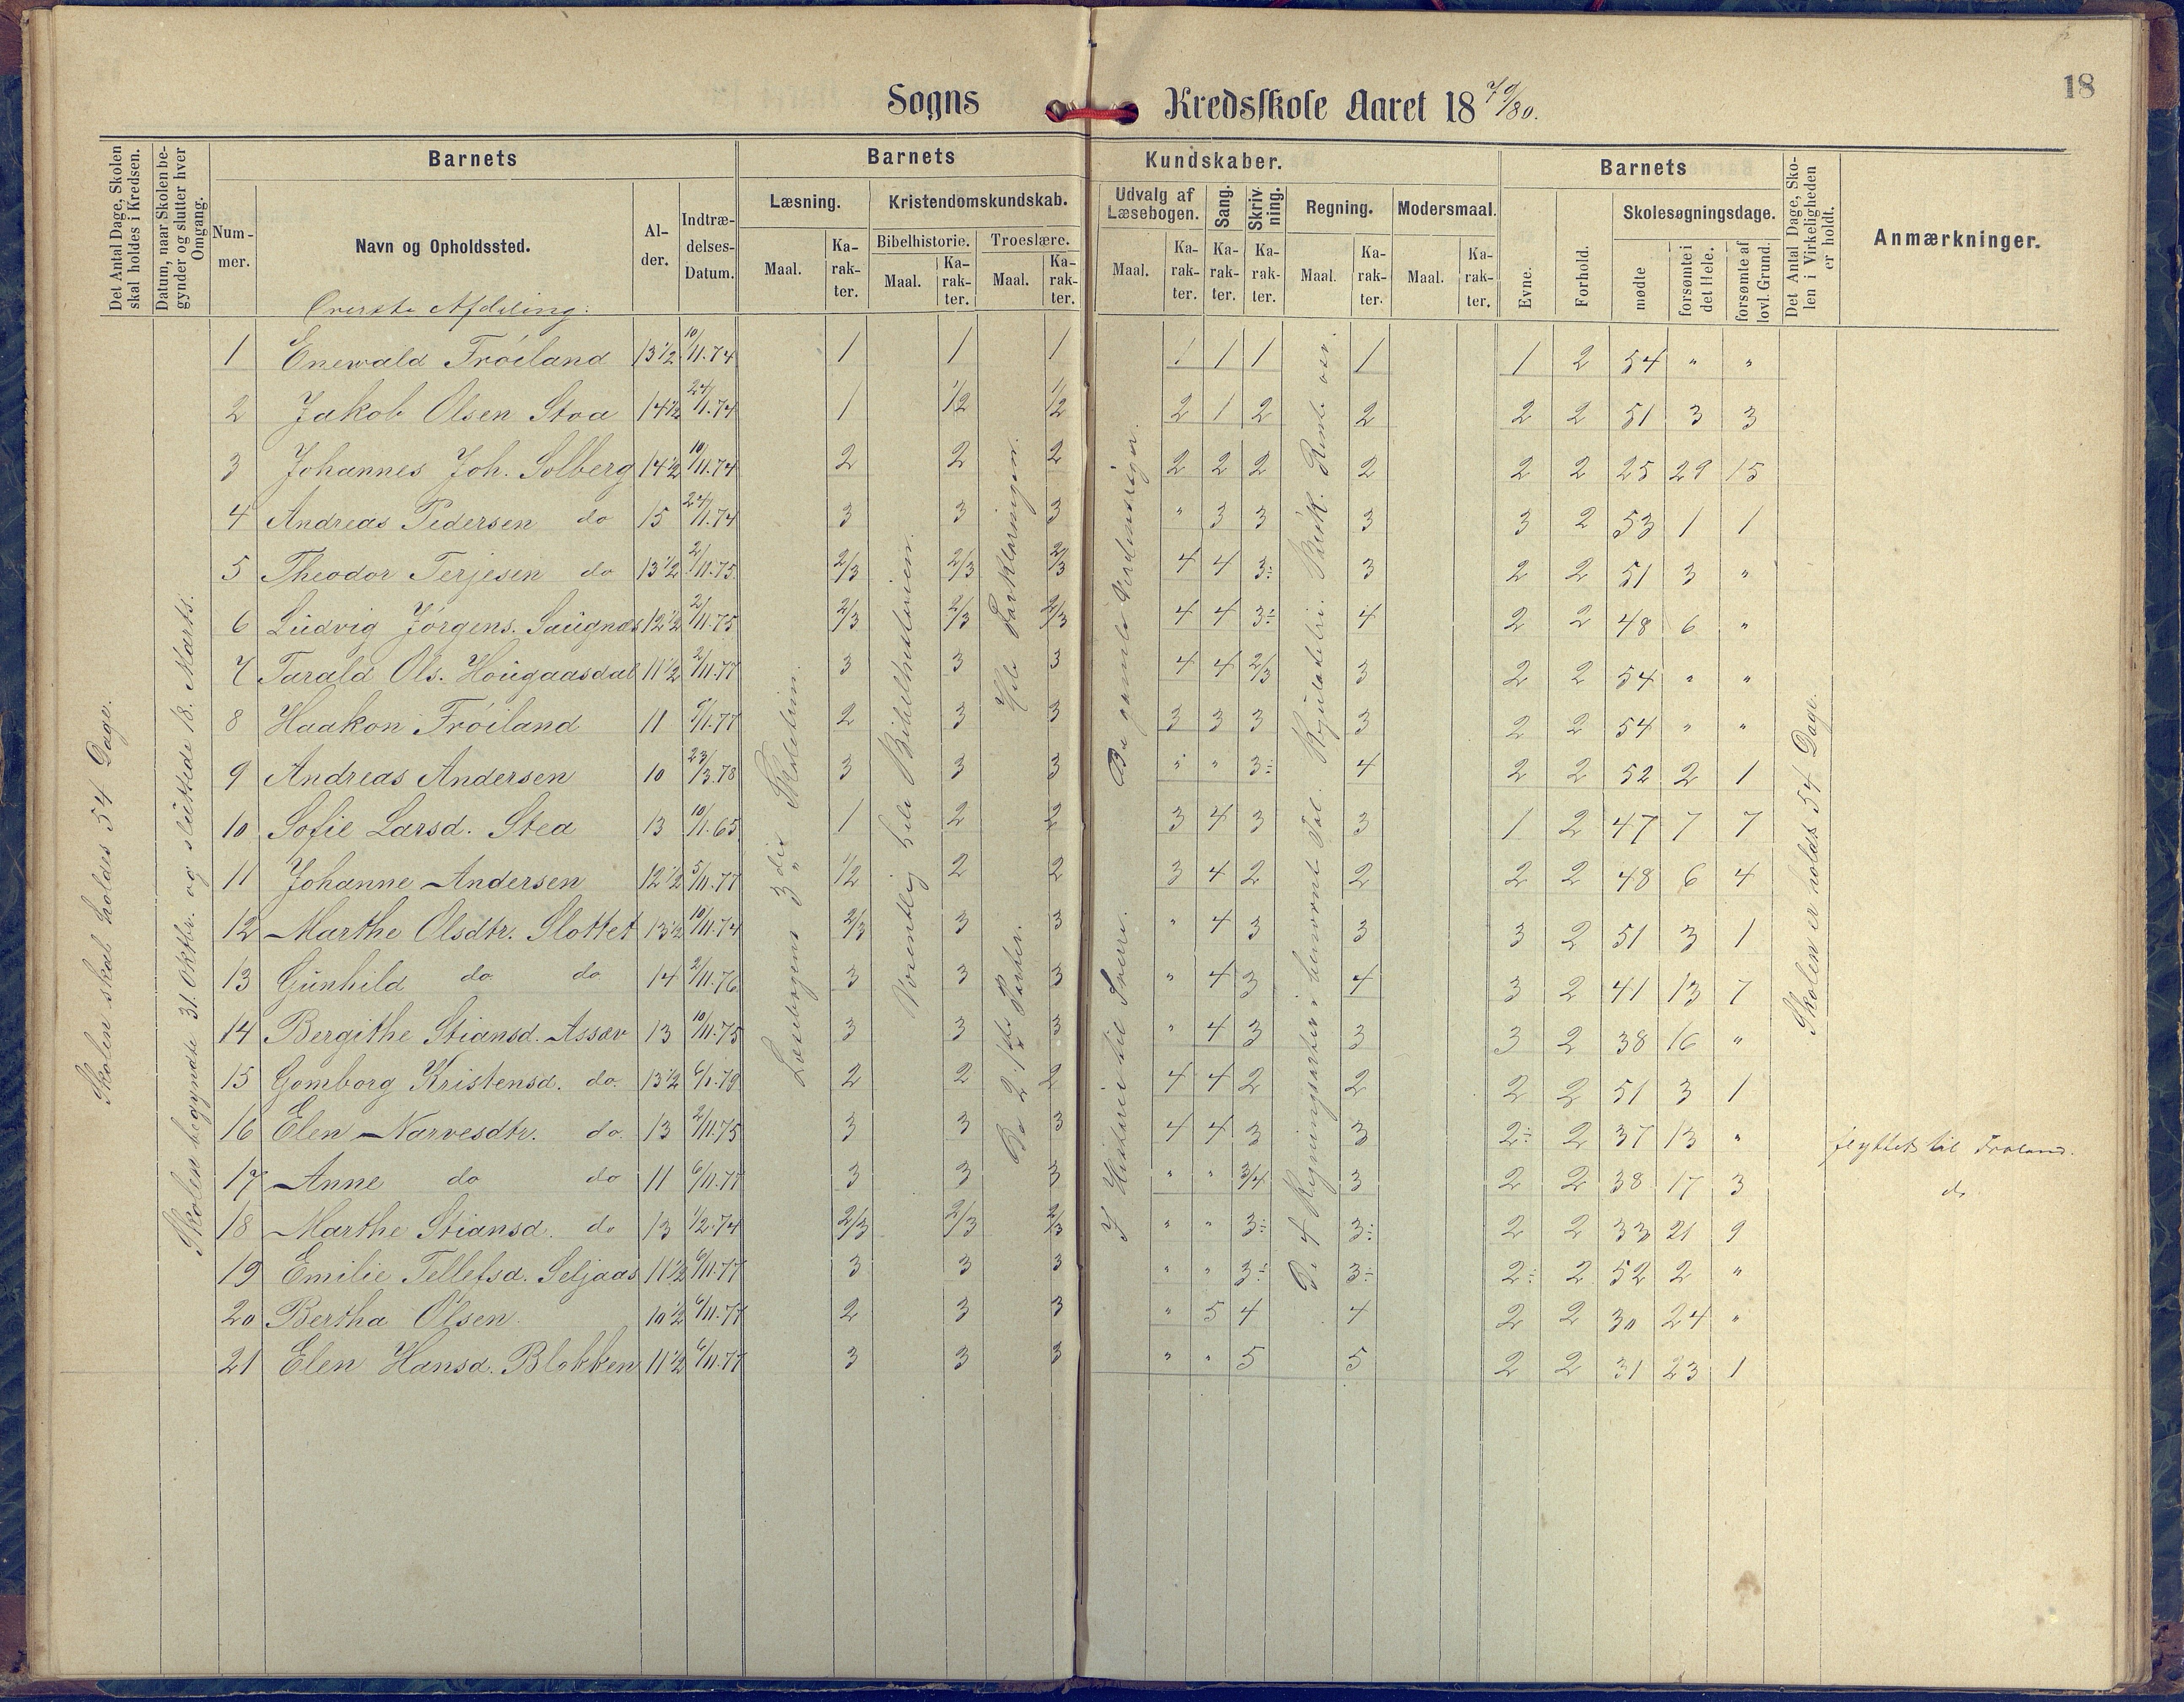 18
Sogns Kredsskole Aaret 1879/80.
Det Antal Dage, Skolen skal holdes i Kredsen.
Datum, naar Skolen begynder og slutter hver Omgang.
Barnets
Barnets Kundskaber.
Barnets
Det Antal Dage, Skolen i Virkeligheden er holdt.
Anmærkninger.
Nummer.
Navn og Opholdssted.
Alder.
Indtrædelses-Datum.
Læsning.
Kristendomskundskab.
Udvalg af Læsebogen.
Sang.
Skrivning.
Regning.
Modersmaal.
Evne.
Forhold.
Skolesøgningsdage.
Bibelhistorie.
Troeslære.
Maal. Karakter. Maal. Karakter. Maal. Karakter. Maal. Karakter. Karakter. Karakter. Maal. Karakter. Maal. Karakter.
mødte
forsømte i det Hele.
forsømte af lovl. Grund.
Skolen skal holdes 54 Dage.
Skolen begyndte 31. Oktbr. og sluttede 18. Marts.
Læsebogens 3die Skoletrin.
Væsentlig hele Bibelhistorien.
Hele Forklaringen.
De 2 første Parter.
De gamle Verdensriger.
I Historie til Sverre.
De 4 Regningsarter i benævnt Tal. Reguladetri. Brøk. Rente
Skolen er holdt 54 Dage.
Øverste Afdeling:
1 Enewald Frøiland 13½ 10/11.74 1 1 1 1 1 1 1 1 2 54 " "
2 Jakob Olsen Stoa 14½ 24/11.74 1 1/2 1/2 2 1 2 2 2 2 51 3 3
3 Johannes Joh. Solberg 14½ 10/11.74 2 2 2 2 2 2 2 2 2 25 29 15
4 Andreas Pedersen do 15 24/11.74 3 3 3 " 3 3 3 3 2 53 1 1
5 Theodor Terjesen do 13½ 2/11.75 2/3 2/3 2/3 4 4 3÷ 3 2 2 51 3 "
6 Ludvig Jørgens. Saugnæs 12½ 2/11.75 2/3 2/3 2/3 4 4 3÷ 4 2 2 48 6 "
7 Tarald Ols. Hougaasdal 11½ 2/11.77 3 3 3 4 4 2/3 3 2 2 54 " "
8 Haakon Frøiland 11 9/1.77 2 3 3 3 3 3 3 2 2 54 " "
9 Andreas Andersen 10 23/3.78 3 3 3 " " 3÷ 4 2 2 52 2 1
10 Sofie Larsd. Stea 13 10/11.65 1 2 2 3 4 3 3 1 2 47 7 7
11 Johanne Andersen 12½ 5/11.77 1/2 2 2 3 4 2 2 2 2 48 6 4
12 Marthe Olsdtr. Slottet 13½ 10/11.74 2/3 3 3 " 4 3 3 3 2 51 3 1
13 Gunhild do do 14 2/11.76 3 3 3 " 4 3 4 3 2 41 13 7
14 Bergithe Stiansd. Assæv 13 10/11.75 3 3 3 " 4 3 3 3 2 38 16 "
15 Gomborg Kristensd. do. 13½ 6/1.79 2 2 2 4 4 2 2 2 2 51 3 1
16 Elen Narvesdtr. do. 13 2/11.75 3 3 3 4 4 3 3 2÷ 2 37 13 " flyttet til Froland.
17 Anne do do 11 6/11.77 3 3 3 " " 3/4 3 2 2 38 17 3 do
18 Marthe Stiansd. do 13 1/2.74 2/3 2/3 2/3 " " 3÷ 3÷ 2 2 33 21 9
19 Emilie Tellefsd. Seljaas 11½ 6/11.77 3 3 3 " " 3÷ 3÷ 2÷ 2 52 2 "
20 Bertha Olsen 10½ 6/11.77 2 3 3 " 5 4 4 2 2 30 24 "
21 Elen Hansd. Blokken 11½ 6/11.77 3 3 3 " " 5 5 2 2 31 23 1